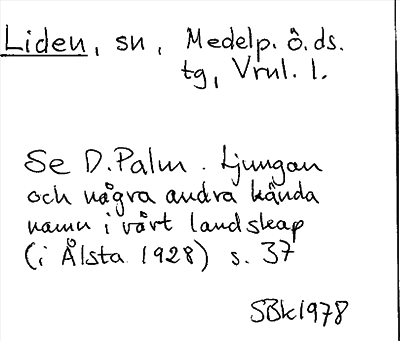 Liden, sn, Medelp. ö. ds.
tg, Vrnl. l.
Se D. Palm. Ljungan
och några andra kända
namn i vårt landskap
(i Ålsta 1928) s. 37
SBk1978